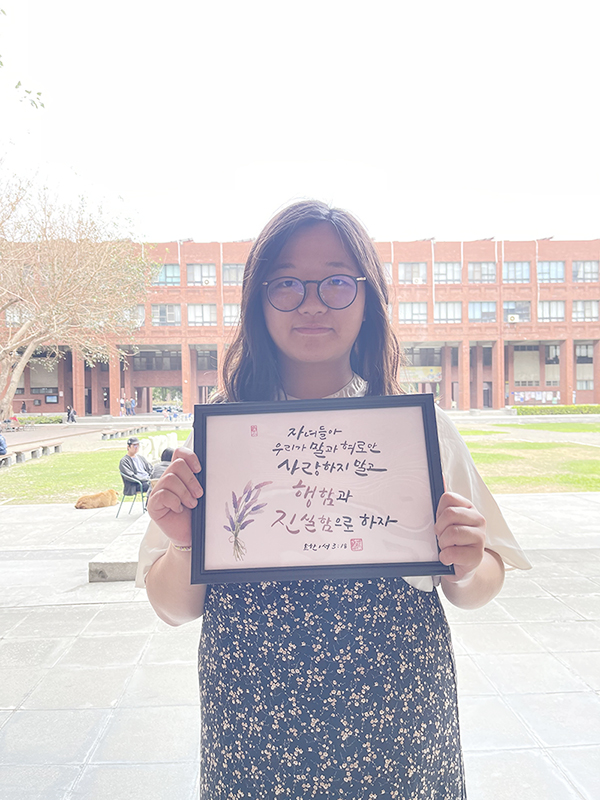 자녀들아
우리가 말과 혀로만
사랑하지 말고
행함과
진실함으로 하자
요한1서 3:18